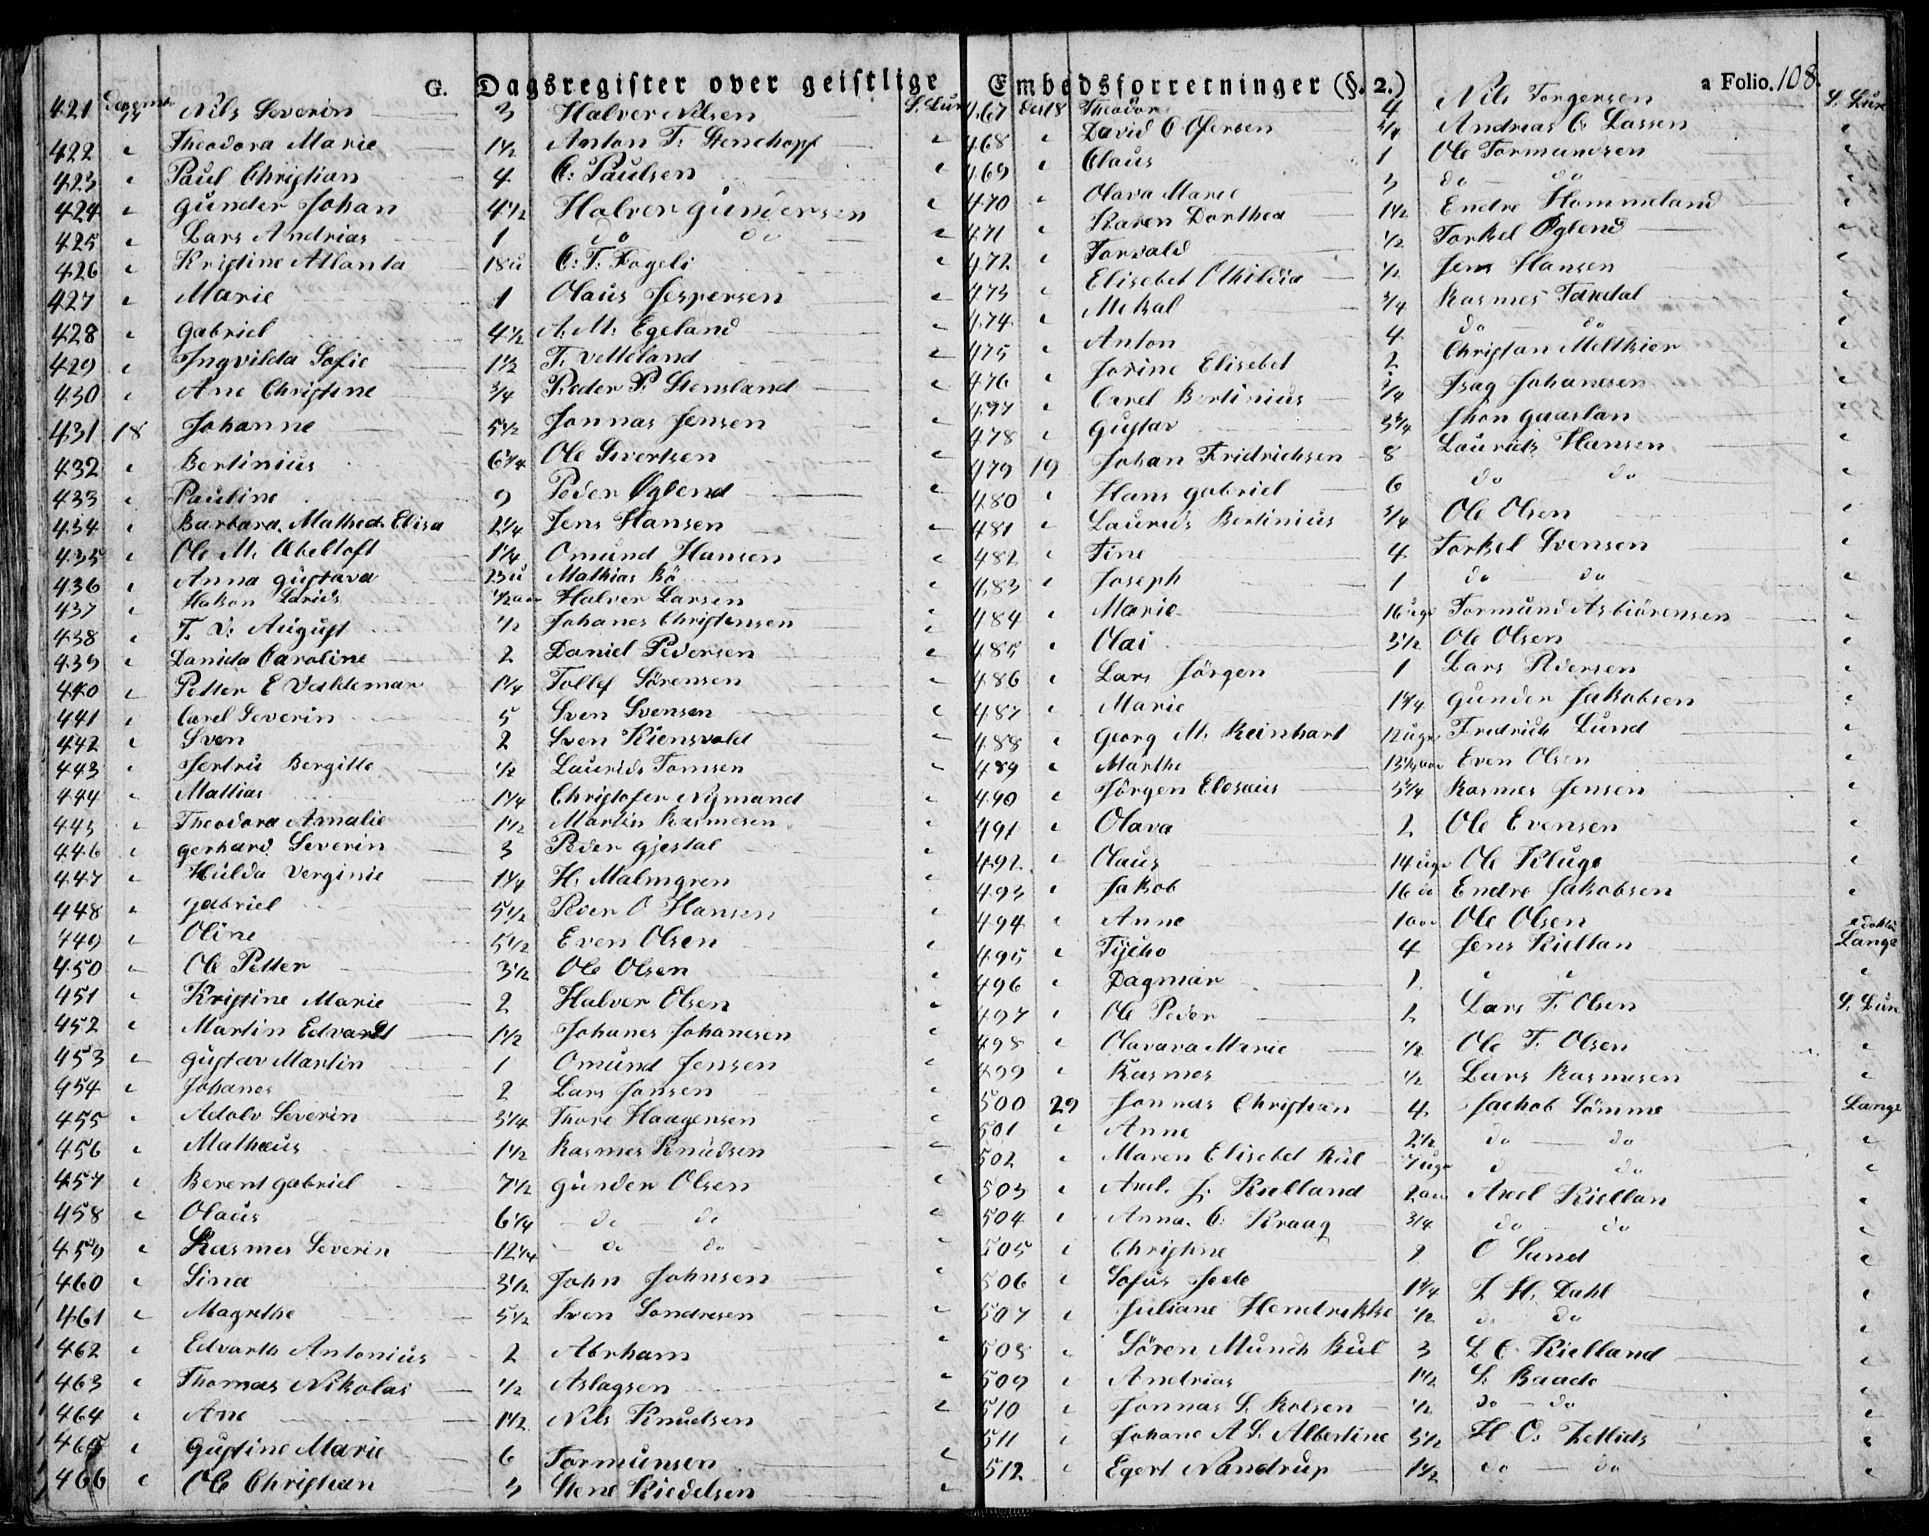 G. Dagsregister over geistlige Embedsforretninger (§. 2.) a Folio. 108.
421 Nils Severin 3 Halver Nilsen
422 " Theodora Marie 1½ Anton T. Stenchopf "
423 " Paul Christian 4 C: Paulsen "
424 " Gunder Johan 4½ Halver Gundersen "
425 " Lars Andrias 1 do do "
426 " Kristine Atlanta 18u C: T. Fogeli "
427 " Marie 1 Olaus Jespersen "
428 " Gabriel 4½ A. M. Egeland "
429 " Ingvilda Sofie 1½ T. Velleland "
430 " Ane Christine ¾ Peder P. Stensland "
431 18 Johanne 5½ Jonnas Jensen "
432 " Bertinius 6¾ Ole Sivertsen "
433 " Pauline 9 Peder Øglend "
434 " Barbara Mathed. Elisa 2¼ Jens Hansen "
435 " Ole M. Abeltoft 1¼ Omund Hansen "
436 " Anna Gustava 23u Mathias Bö "
437 " Hakon Larids ½ Halver Larsen "
438 " T. V. August ½ Johanes Christensen "
439 " Danida Caroline 2 Daniel Pedersen "
440 " Petter E Valdemar 1¼ Tollef Sörensen "
441 " Carel Severin 5 Sven Svensen "
442 " Sven 2 Sven Kiensvold "
443 " Jertru Bergitte ½ Laurids Tomsen "
444 " Mattias 1¼ Christofer Nymand "
445 " Theodora Amalie 1½ Martin Rasmesen "
446 " Gerhard Severin 3 Peder Gjestal "
447 " Hulda Verginie 1¼ H. Malmgren "
448 " Gabriel 5½ Peder O Hansen "
449 " Oline 5½ Even Olsen "
450 " Ole Petter 3½ Ole Olsen "
451 " Kristine Marie 2 Halver Olsen "
452 " Martin Edvardt 1½ Johanes Johanesen "
453 " Gustav Martin 1 Omund Jensen "
454 " Johanes 2 Lars Jonsen "
455 " Adolv Severin 3¼ Thore Haagensen "
456 " Matheus 1½ Rasmes Knudsen "
457 " Berent Gabriel 7½ Gunder Olsen "
458 " Olaus 6¼ do do
459 " Rasmes Severin 12¼ do do "
460 " Sina 3½ John Johnsen "
461 " Magrethe 5½ Sven Sondresen "
462 " Edvarth Antonius 2 Abrham "
463 " Thomas Nikolai ½ Aslagsen "
464 " Ane 1½ Nils Knudsen "
465 " Gustine Marie 6 Tormunsen "
466 " Ole Christian 3 Stene Riedelsen "
467 Theodor 4 Nils Torgersen
468 " David O Ofersen ¾ Andreas C. Lassen "
469 " Claus 1 Ole Tormundsen "
470 " Olava Marie 3 do do "
471 " Karen Dorthea 1½ Endre Hommeland "
472 " Torvald ½ Torkel Øglend "
473 " Elisebet Othildia ½ Jens Hansen "
474 " Mekal ¾ Rasmes Tardal "
475 " Anton 4 do do "
476 " Jorine Elisebet 2 Christan Melthier "
477 " Carel Bertinius ¾ Isag Johanesen "
478 " Gustav 3¾ Jhon Gaaslan "
479 19 Johan Fridrichsen 8 Laurids Hansen "
480 " Hans Gabriel 6 do do "
481 " Laurids Bertinius ¾ Ole Olsen "
482 " Tine 4 Torkel Svensen "
483 " Joseph 1 do do "
484 " Marie 16 uge Tormund Asbiörensen "
485 " Olai 3½ Ole Olsen "
486 " Lars Jörgen 1 Lars Pedersen "
487 " Marie 1¼ Gunder Jakobsen "
488 " Georg M. Reinhart 12 uge Fredrich Lund "
489 " Marthe Even Olsen "
490 " Jörgen Elesaus 5¼ Rasmes Jensen "
491 " Olava 2 Ole Evensen "
492 " Olaus 14 uge Ole Kluge "
493 " Jakob 16 do Endre Jakobsen "
494 " Anne Ole Olsen "
495 " Tycho 4 Jens Kiellan Lange
496 " Dagmar 1 " " "
497 " Ole Peder 1 Lars T. Olsen
498 " Olavara Marie ½ Ole T. Olsen "
499 " Rasmes ½ Lars Rasmesen "
500 29 Jonnas Christian 4 Jachob Sömme Lange
501 " Anne 2½ do do "
502 " Maren Elisebet Bul 7 uge do do "
503 " Axel J. Kielland Axel Kiellan "
504 " Anna C: Kraag ¾ do do "
505 " Christine 2 O Sund "
506 " Sofus Jede 1¼ L H. Dahl "
507 " Juliane Hendrikke ½ do do "
508 " Sören Munch Bul 3 L C. Kielland "
509 " Andrias 1½ S. Baade "
510 " Jonnas S. Kolsen ½ do do "
511 " Johane A S. Albertine 3½ H O. Zetlids "
512 " Egert Nandrup 1½ do do "